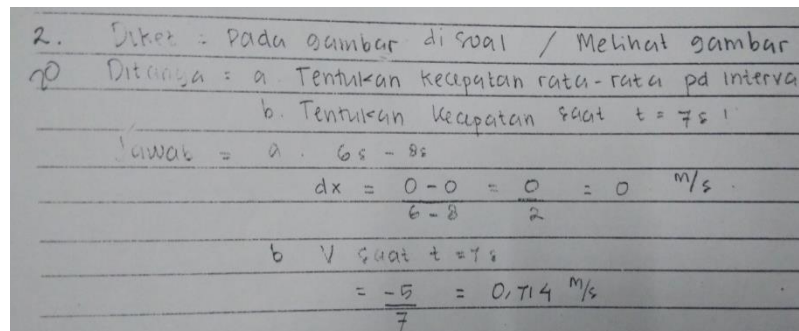 2. Diket = Pada gambar di soal / Melihat gambar
20 Ditanya = a Tentukan kecepatan rata-rata pd interva
b. Tentukan kecepatan saat t = 7s !
Jawab = a. 6s - 8s
dx = 0 - 0 / 6 - 8 = 0 / 2 = 0 m/s.
b V saat t = 7s
= -5 / 7 = 0,714 m/s